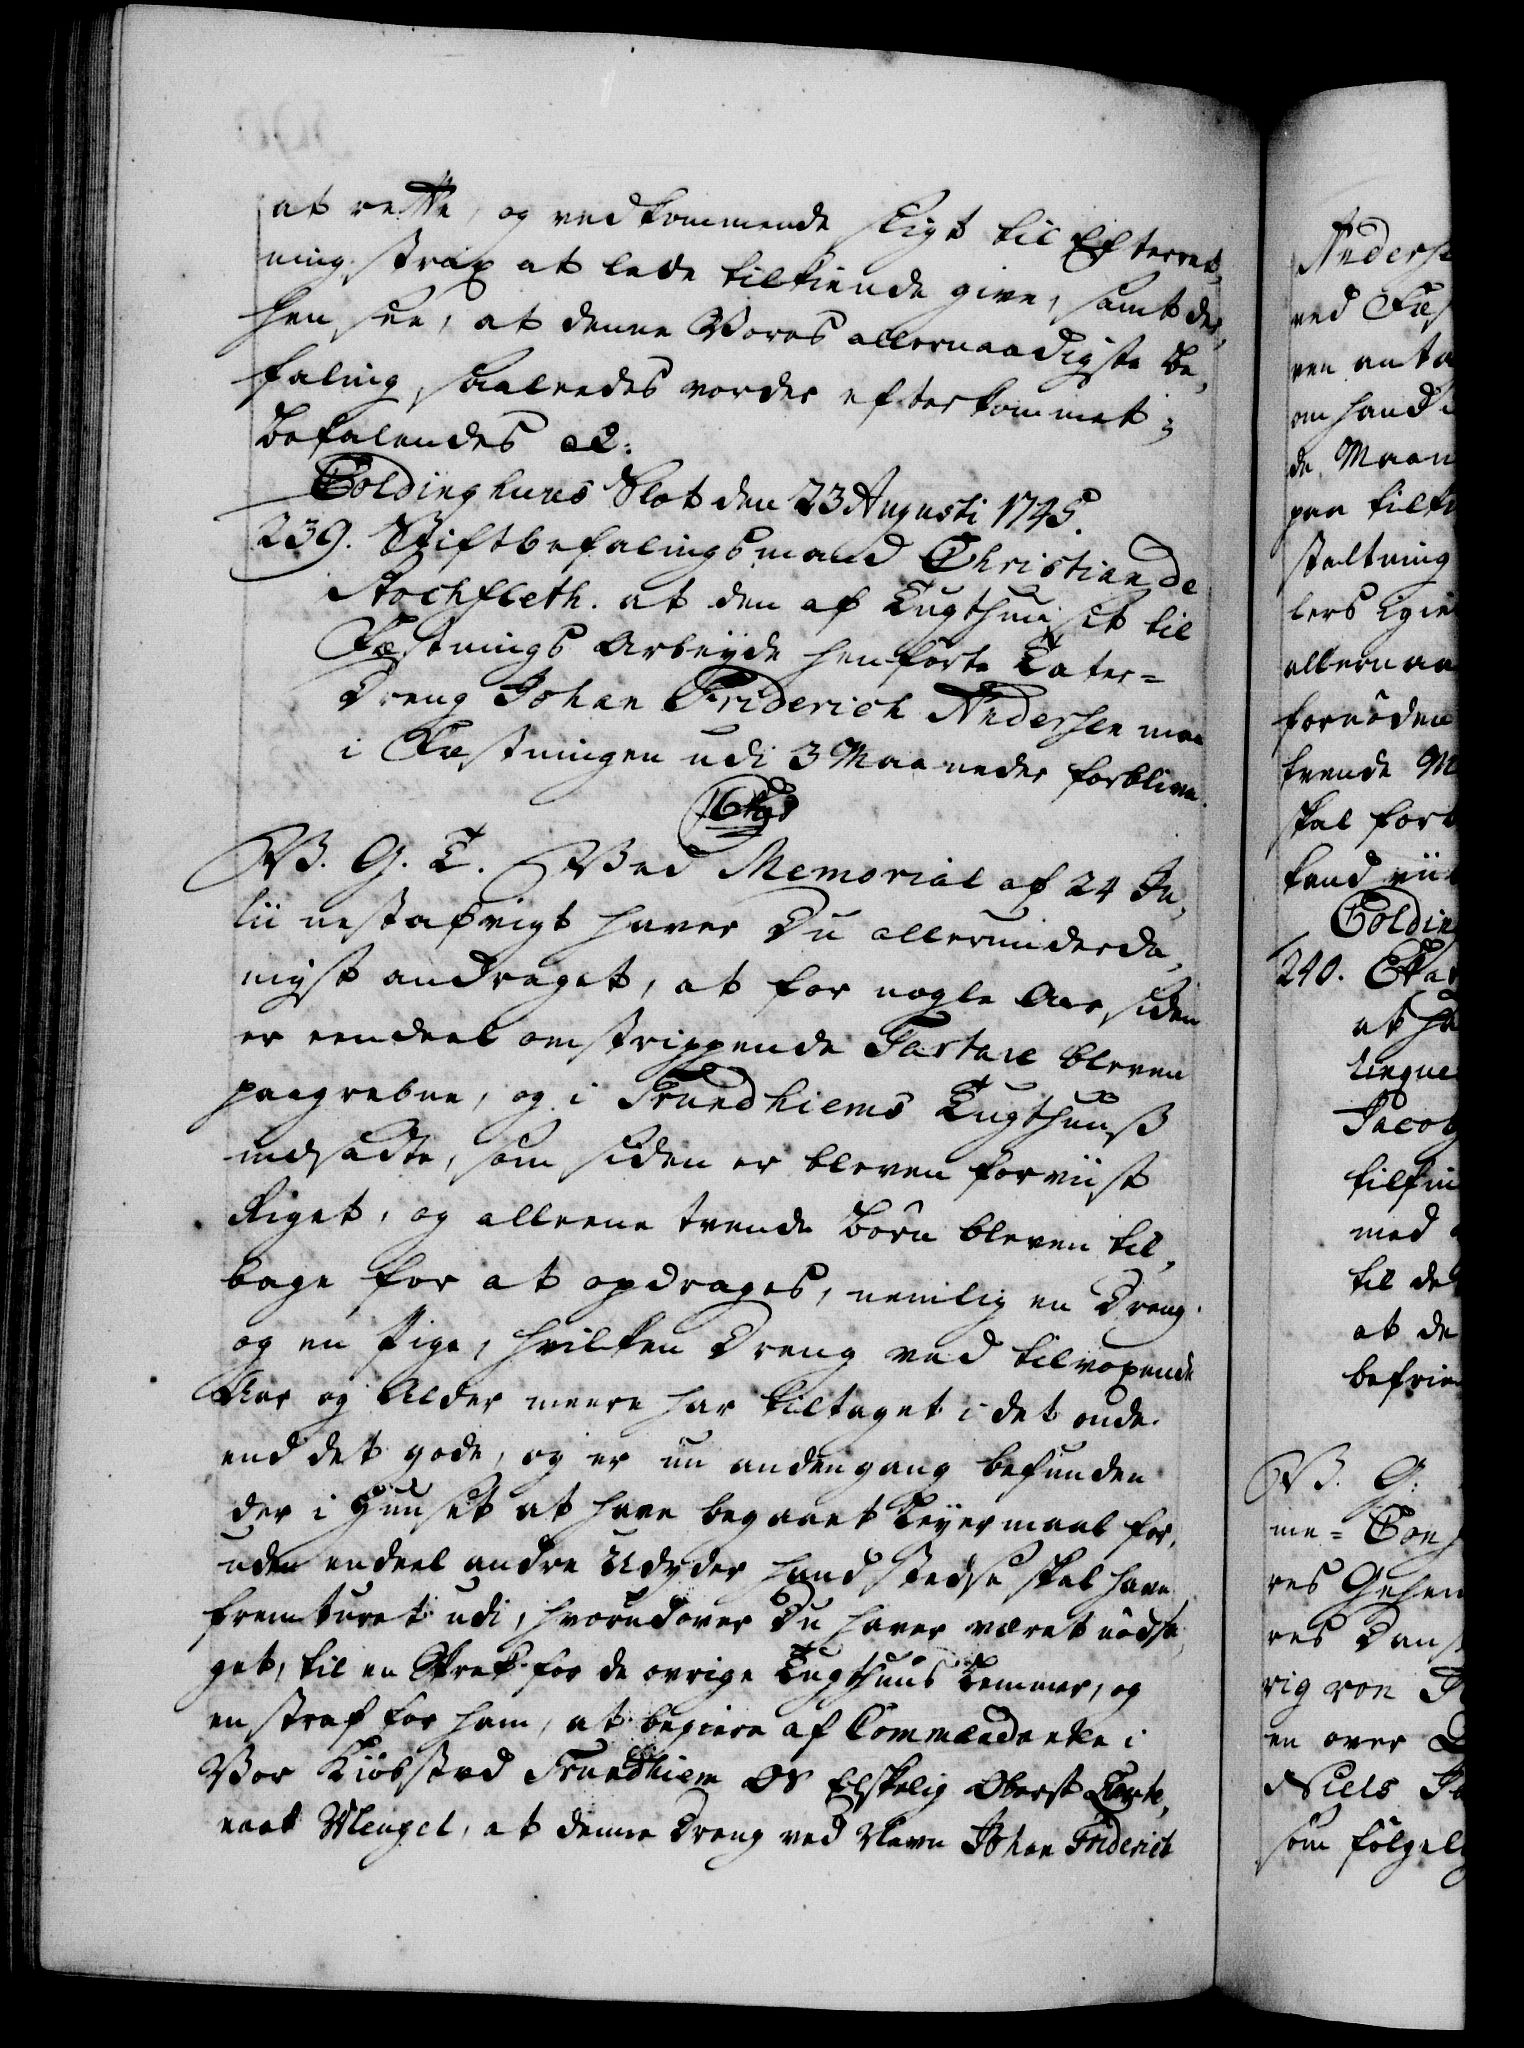 at rette, og vedkommende sligt til Efterret,
ning strax at lade tilkiende give, samt der,
hen see, at denne Vores allernaadigste Be,
faling saaleedes vorder efterkommet;
Befalendes etc:
Coldinghuus Slot den 23 Augusti 1745.
239. Stiftbefalingsmand Christian de
Stochfleth. at den af Tugthuuset til
Fæstnings Arbeyde henførte Tater=
Dreng Johan Friderich Andersen maa
i Fæstningen udi 3 Maaneder forblive.
C6tus
V. G. T. Ved Memorial af 24 Ju,
lii nestafvigt haver Du allerunderda,
nigst andraget, at for nogle Aar siden
er eendeel omstrippende Tartare bleven
paagrebne, og i Trundhiems Tugthuuß
indsadte, som siden er bleven forviist
Riget, og alleene tvende Børn bleven til,
bage for at opdrages, nemlig en Dreng
og en Pige, hvilken Dreng ved tilvoxende
Aar og Alder meere har tiltaget i det onde
end det gode, og er nu anden gang befunden
der i Huuset at have begaaet Leyermaal for,
uden endeel andre Udyder hand stedse skal have
fremturet udi, hvorudover Du haver været nødsa,
get, til en Skrek for de øvrige Tugthuus Lemmer, og
en straf for ham, at begiere af Commendanten i
Vor Kiøbsted Trundhiem Os Elskelig Oberst Lieute,
nant Mengel, at denne Dreng ved Navn Johan Friderich
Anderse
ved Fæs
ven anta
om hand
de Maan
paa tilf
staltning
lers Egie
allernaa
fornøden
kende M
skal forb
kand vii
Colding
240. Eta
at ha
Jacob
tilfin
med
til de
at de
befrie
V. G.
me= Con
res Gehei
res Dans
rig von
en over
Niels
som følgelig